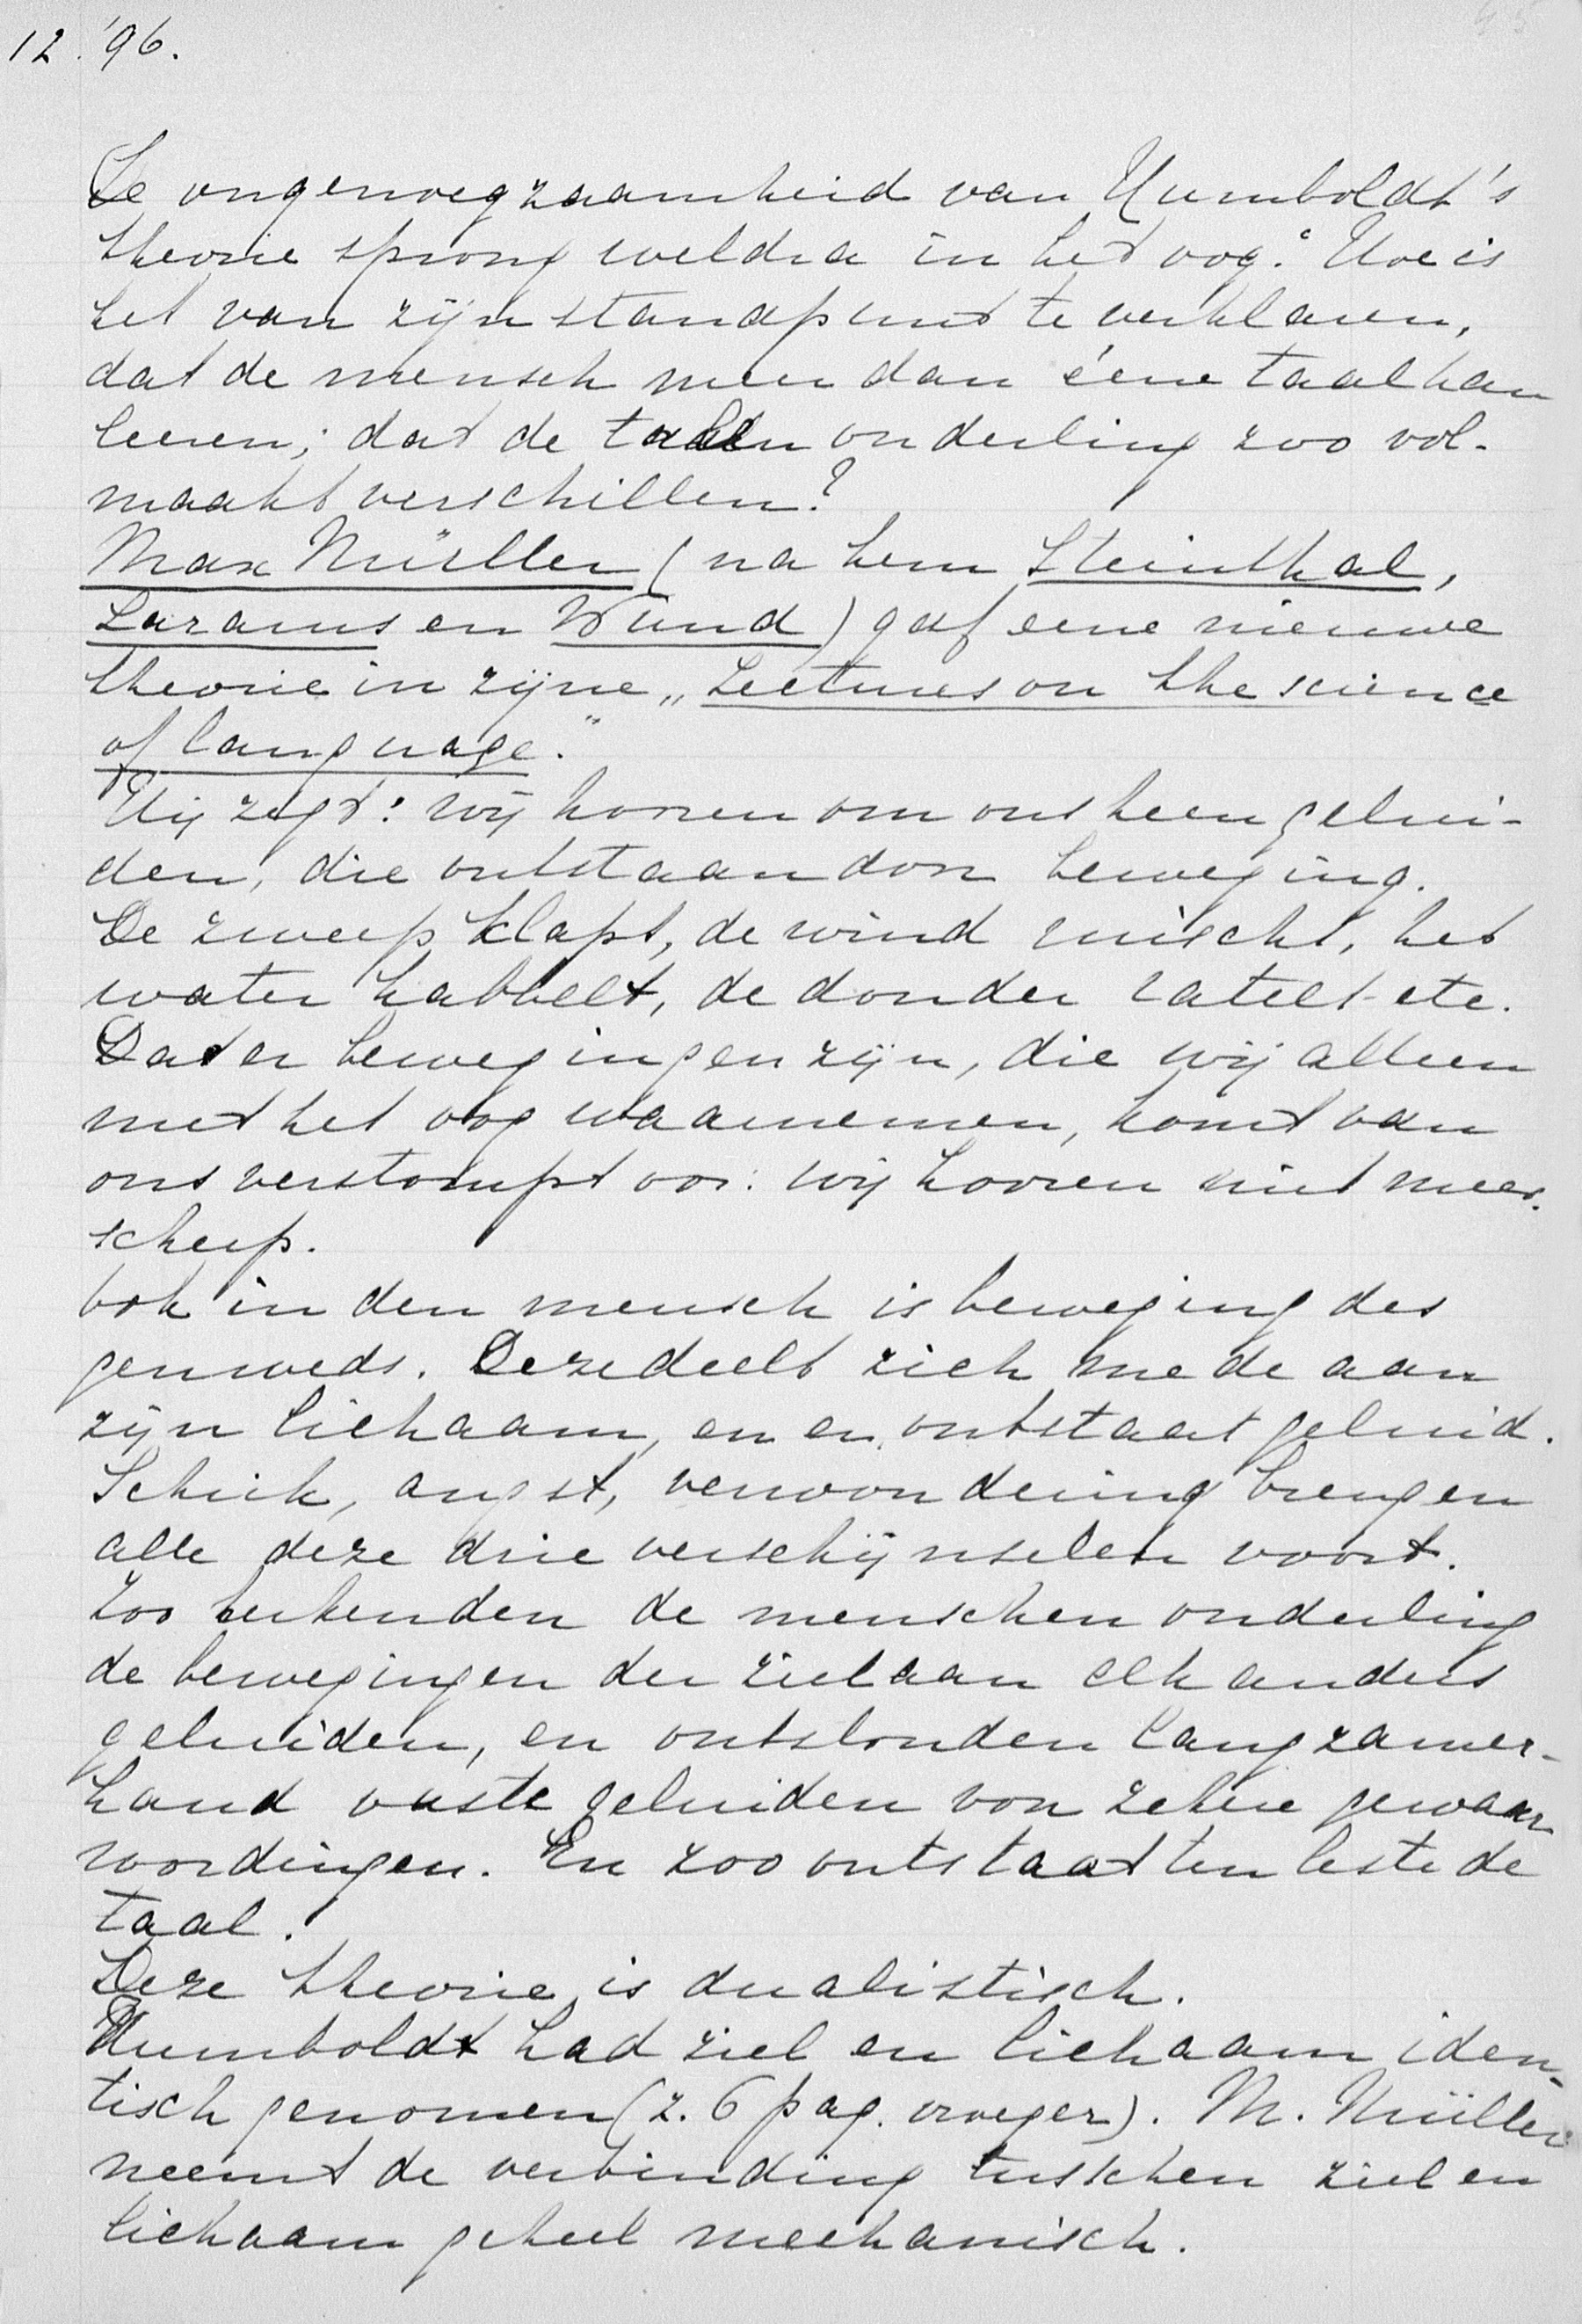 12.'96.
De ongenoegzaamheid van Humboldt's
theorie sprong weldra in het oog: Hoe is
het van zijn standpunt te verklaren,
dat de mensch meer dan ééne taal kan
leeren; dat de talen onderling zoo vol-
maakt verschillen?
Max Müller (na hem Steinthal,
Lazarus en Wund) gaf eene nieuwe
theorie in zijne „Lectures on the science
of language."
Hij zegt: wij hooren om ons heen gelui-
den, die ontstaan door beweging.
De zweep klapt, de wind ruischt, het
water kabbelt, de donder ratelt etc.
Dat er bewegingen zijn, die wij alleen
met het oog waarnemen, komt van
ons verstompt oor: wij hooren niet meer
scherp.
Ook in den mensch is beweging des
gemoeds. Deze deelt zich mede aan
zijn lichaam, en er ontstaat geluid.
Schrik, angst, verwondering brengen
alle deze drie verschijnselen voort.
Zoo herkenden de menschen onderling
de bewegingen der ziel aan elkanders
geluiden, en ontstonden langzamer-
hand vaste geluiden voor zekere gewaar-
wordingen. En zoo ontstaat ten leste de
taal.
Deze theorie is dualistisch.
Humboldt had ziel en lichaam iden-
tisch genomen (z. 6 pag. vroeger). M. Müller
neemt de verbinding tusschen ziel en
lichaam geheel mechanisch.